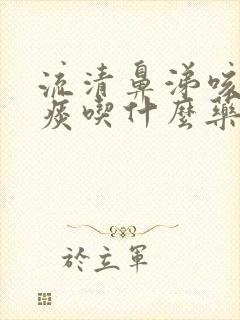 流清鼻涕咳
痰喫什麼藥
於立軍